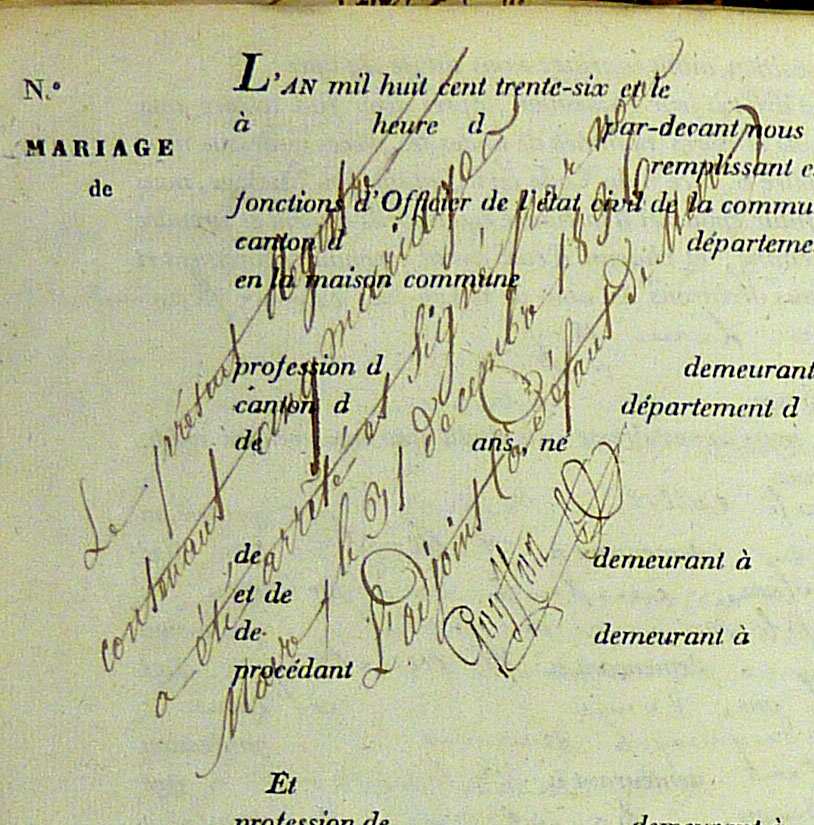 N.º
MARIAGE
de
L'AN mil huit cent trente-six et le
à heure d par-devant nous
remplissant
fonctions d'Officier de l'état civil de la commu
canton d départeme
en la maison commune
profession d demeurant
canton d département d
de ans, né
de demeurant à
et de
de demeurant à
procédant
Et
profession de demeurant à
Le présent Registre
contenant cinq mariages
a été arrêté et signé par nous
le 31 décembre 1836
L'adjoint à défaut de Maire